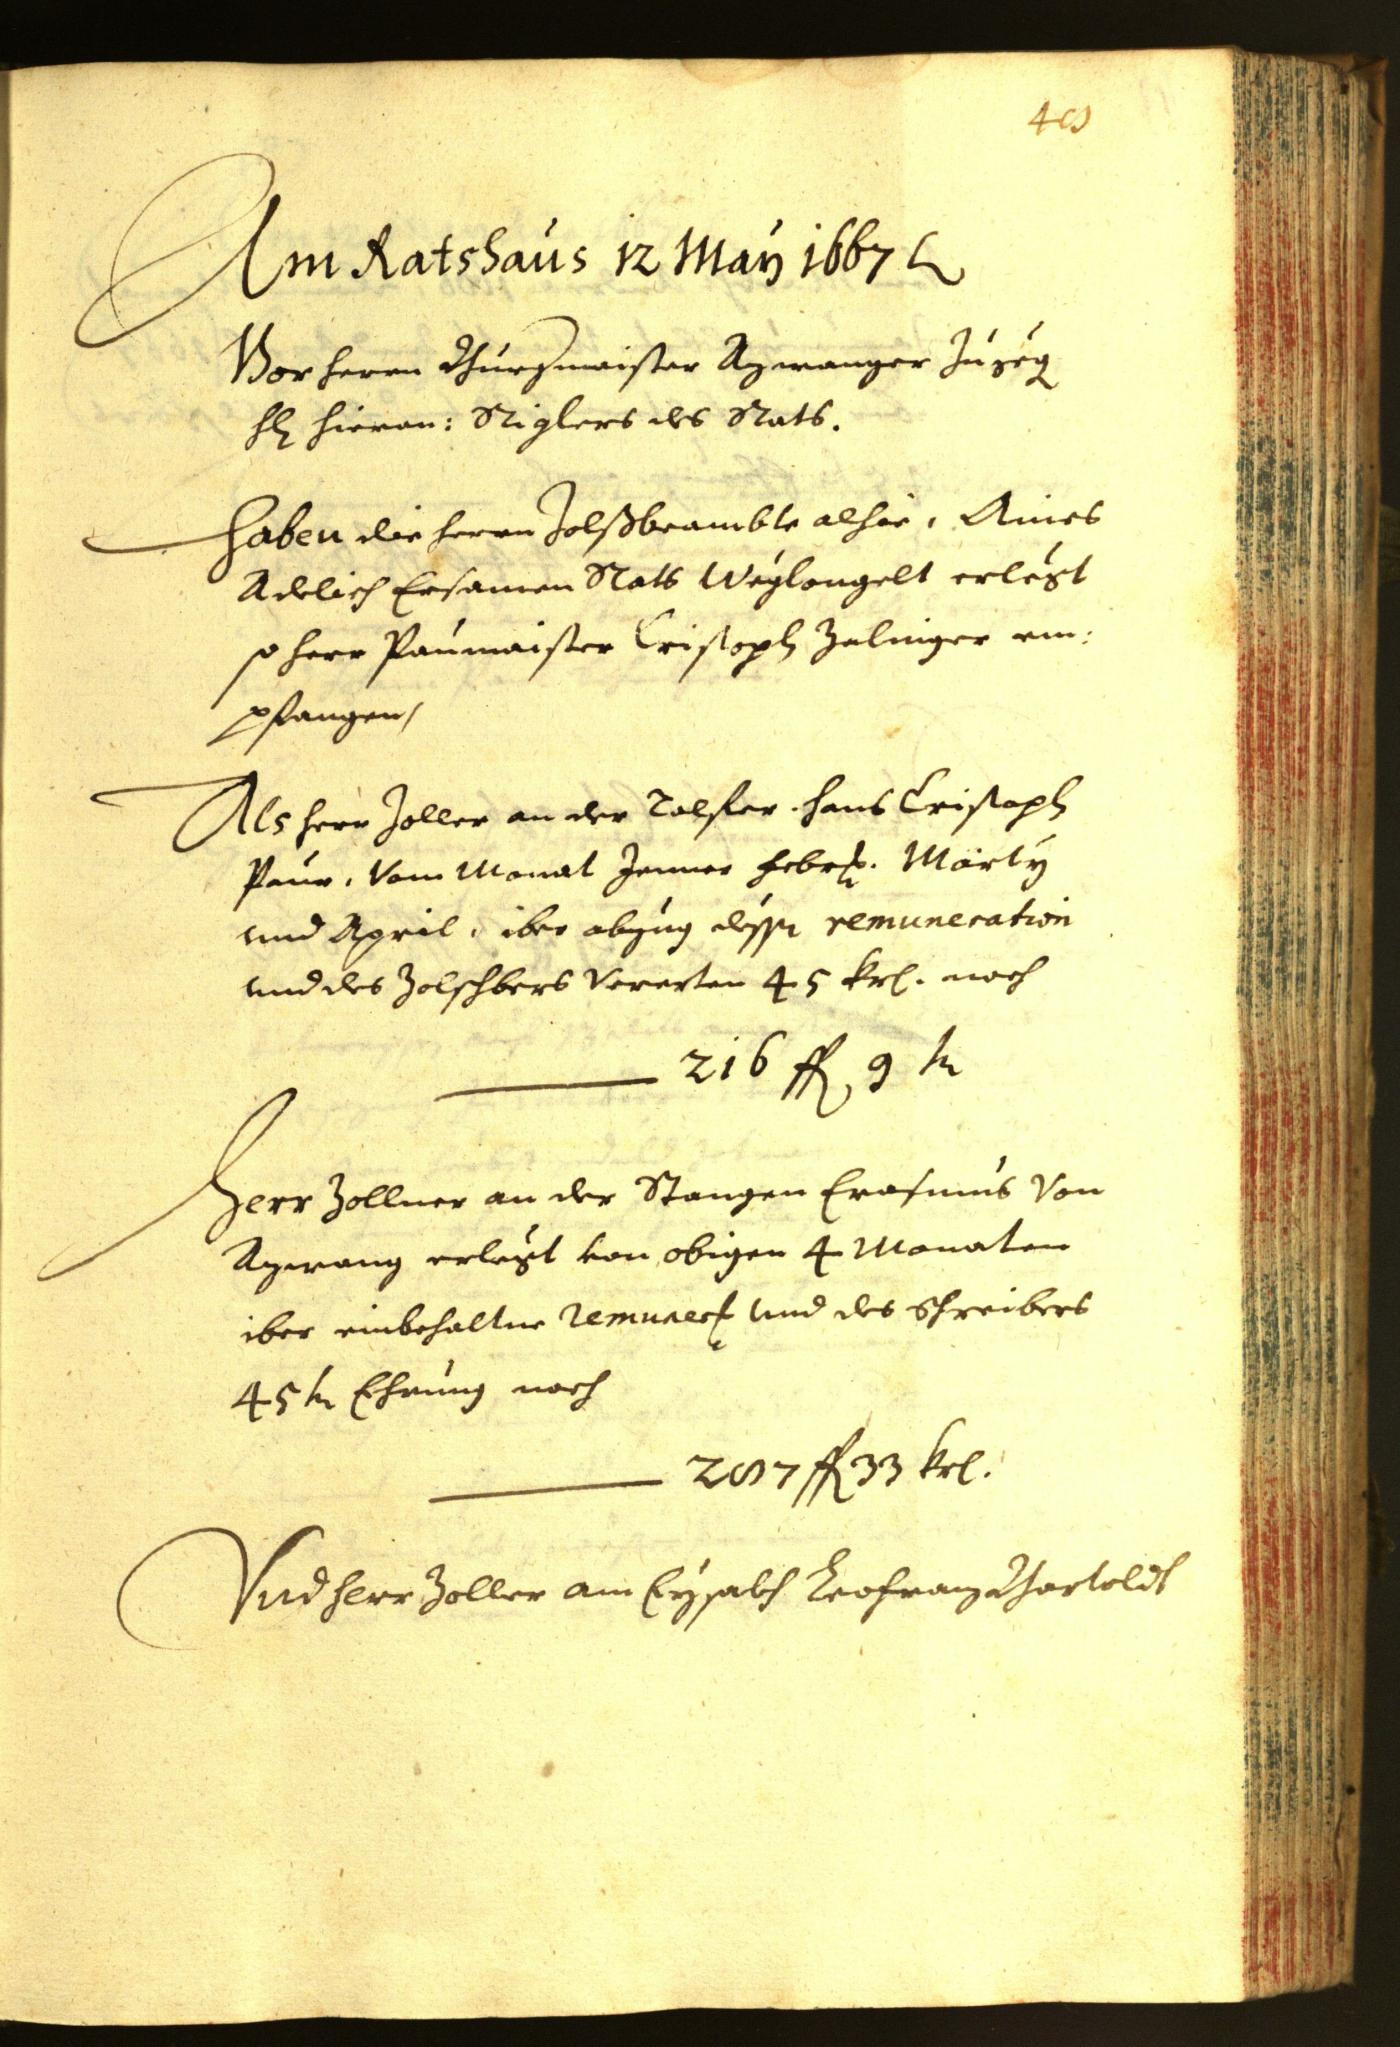 48
Am Ratshaus 12 May 1667
Vor herrn Burgmaister Azwanger Zugeg
hl hieron: Riglers des Rats.
Haben die herrn Zolßbeambte alhie, Aines
Adelich Ersamen Rats Weglongelt erlegt
so herr Paumaister Cristoph Zelinger em:
pfangen/
Als herr Zoller an der Talfer Hans Cristoph
Paur, Vom Monat Jenner Febr. Marty
und April, iber abzug dessen remuneration
und des Zolschbers Vererten 45 krl. noch
216 fl 9 kr
Herr Zollner an der Stangen Erasmus Von
Azwang erlegt von obigen 4 Monaten
iber einbehaltne remuner und des Schreibers
45 kr Ehrung noch
287 fl 33 krl.
Und herr Zoller am Eysakh Leofranz Bartoldi